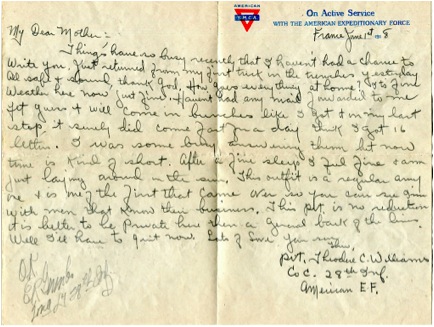 AMERICAN
YMCA
On Active Service
WITH THE AMERICAN EXPEDITIONARY FORCE
France June 1st 1918
My Dear Mother:-
Things have so busy recently that I havent had a chance to
write you. Just returned from my first trick in the trenches yesterday
All safe & sound, thank God. How goes everything at home?
Weather here now just fine. Havent had any mail forwarded to me
yet guess it will come in bunches like I got it in my last
stop. it surely did come fast in a day think I got 16
letters. I was some busy answering them but now
time is kind of short. After a fine sleep I feel fine am
just laying around in the sun. This outfit is a regular army
one & is one of the first that came over so you can see I'm
with men that know their business. This pvt. is no reduction
it is better to be Private here than a back of the lines
Well I'll have to quit now. Lots of love Your son
Theo.
Pvt. Theodore C. Williams
Co C. 28th Inf.
American E.F.
OK
28th Inf